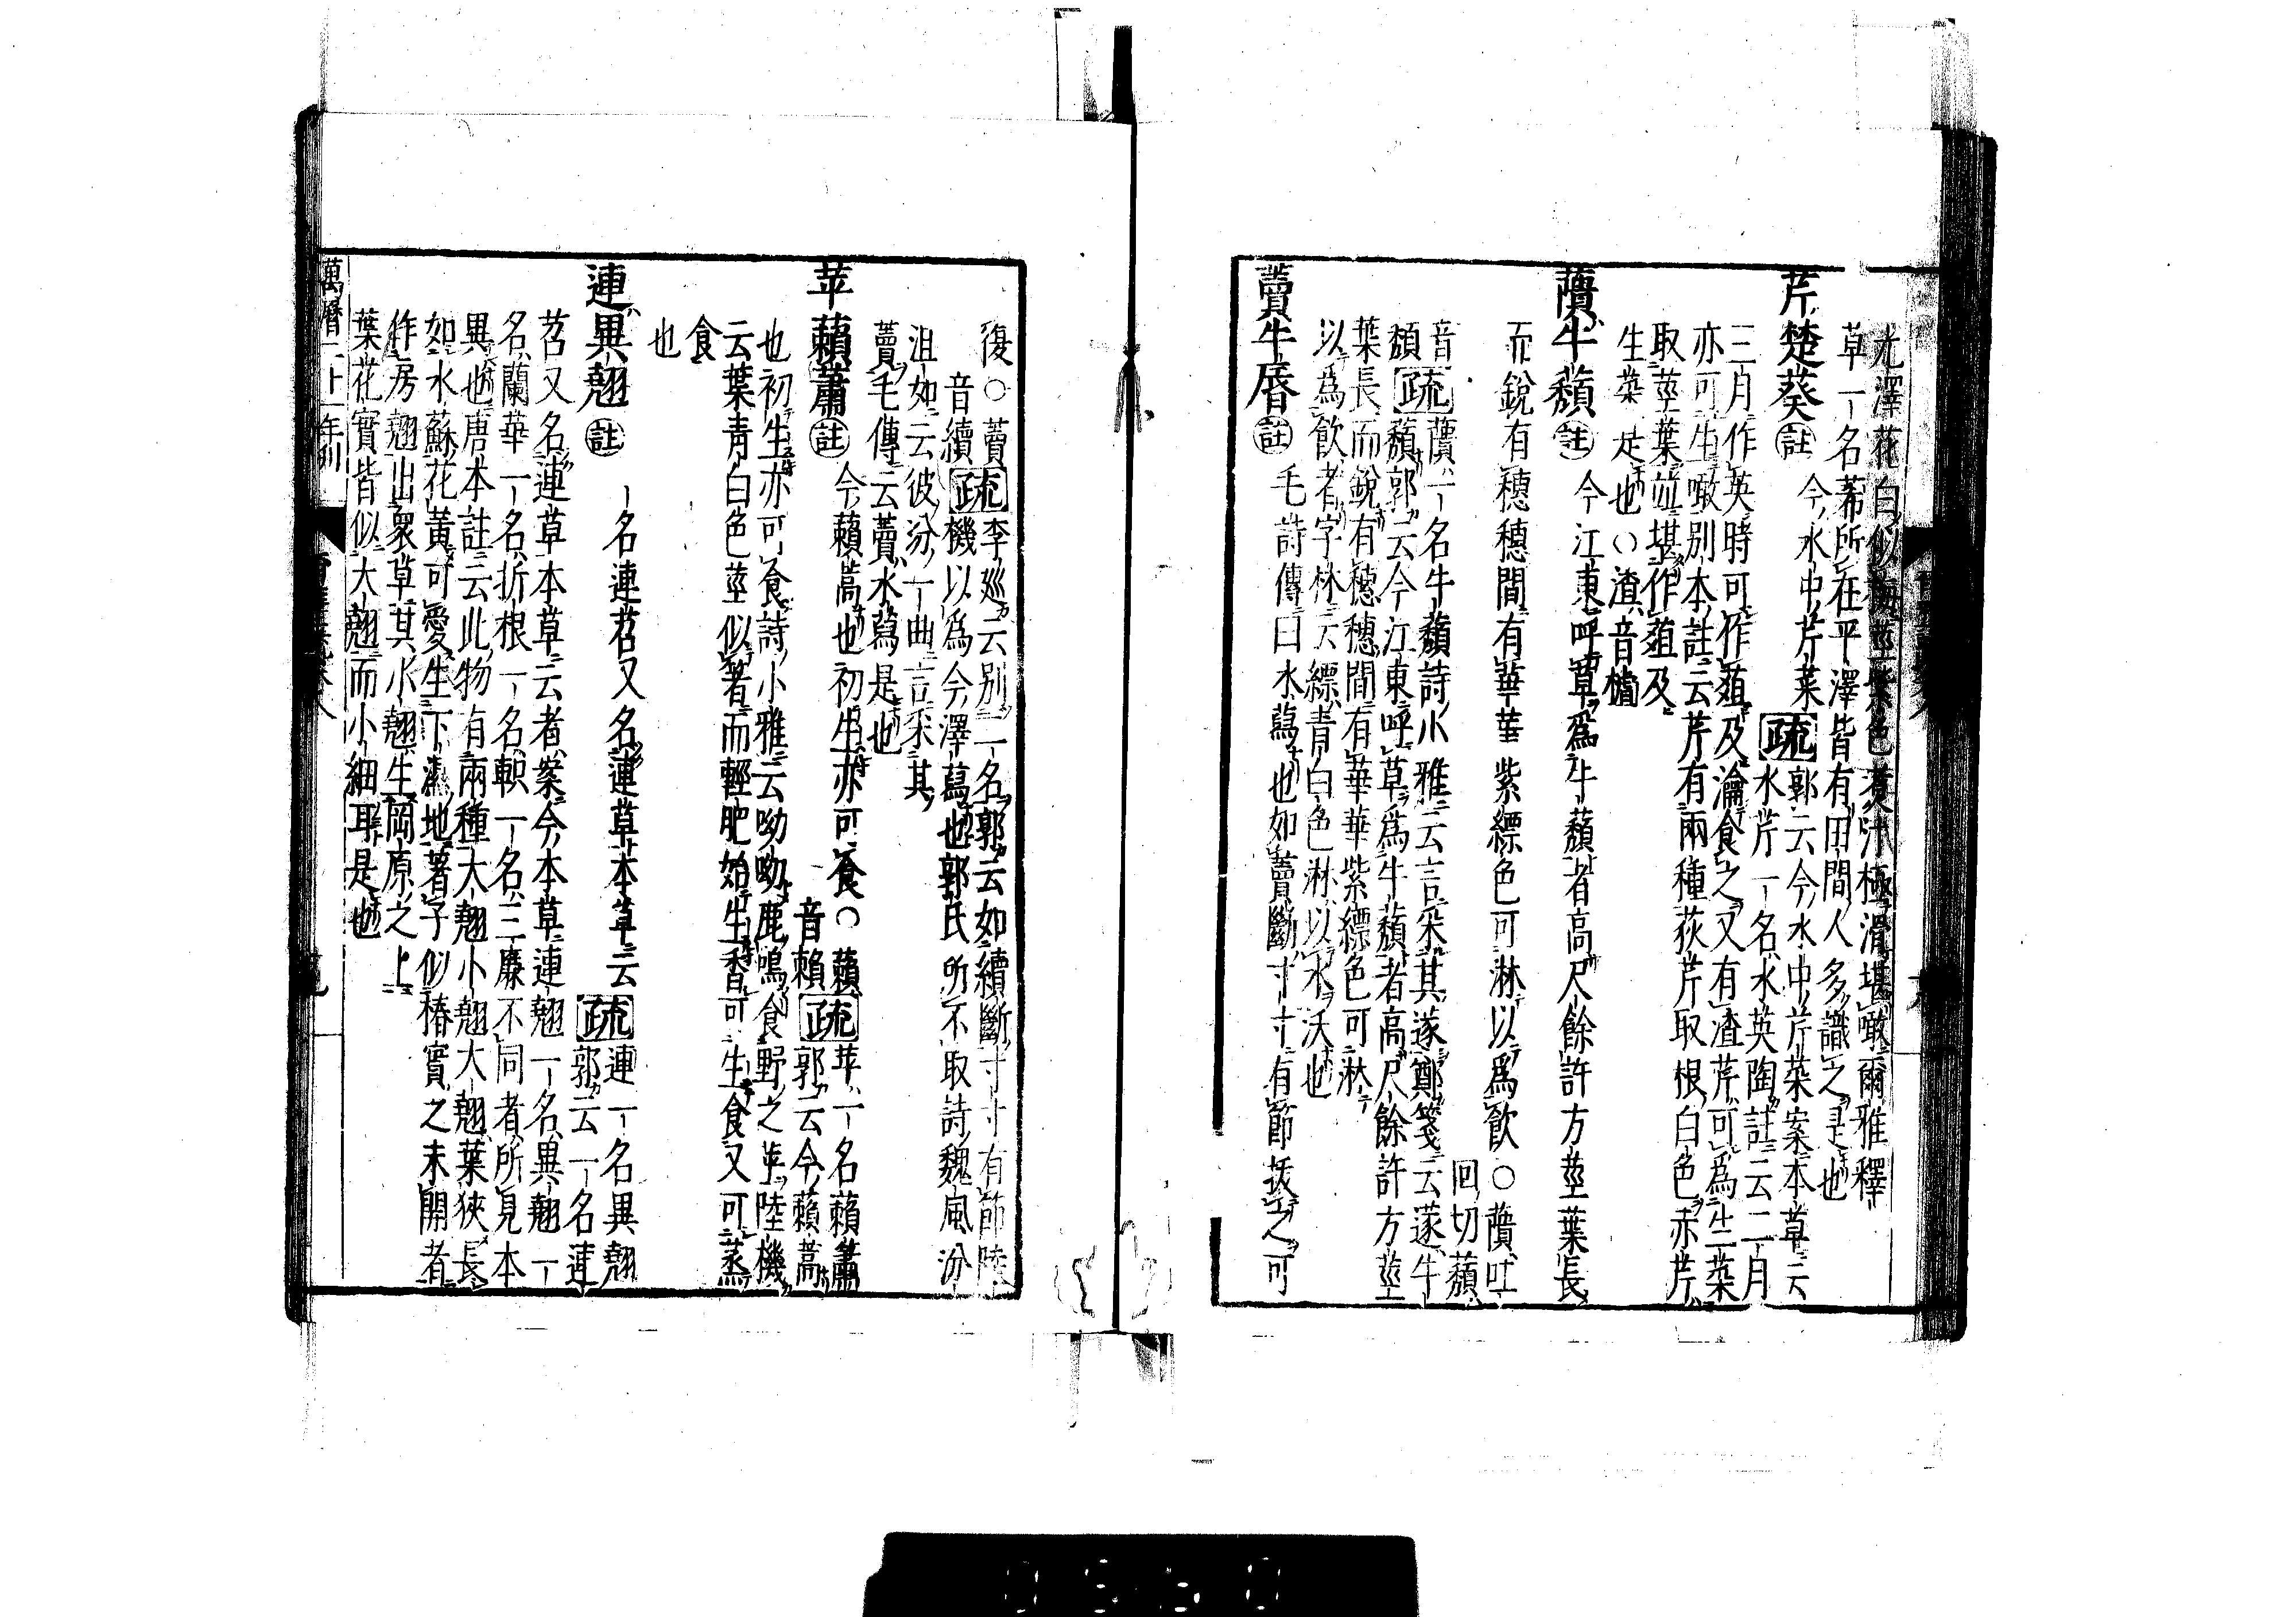 光澤花白似梅莖紫色煑汁極滑堪噉爾雅釋
草一名莃所在平澤皆有田間人多識之是也
芹楚葵註今水中芹菜疏郭云今水中芹菜案本草云
水芹一名水英陶註云二月
三月作英時可作葅及瀹食之又有渣芹可為生菜
亦可生噉別本註云芹有兩種荻芹取根白色赤芹
取莖葉竝堪作葅及
生菜是也○渣音樝
藬牛蘈註今江東呼草為牛蘈者高尺餘許方莖葉長
而銳有穗穗間有華華紫縹色可淋以為飲○藬吐
回切蘈
音
頹疏藬一名牛蘈詩小雅云言采其蓫鄭箋云蓫牛
蘈郭云今江東呼草為牛蘈者高尺餘許方莖
葉長而銳有穗穗間有華華紫縹色可淋
以為飲者字林云縹青白色淋以水沃也
藚牛脣註毛詩傳曰水蕮也如藚斷寸寸有節拔之可
復○藚
音續疏李廵云別二名郭云如續斷寸寸有節陸
機以為今澤蕮也郭氏所不取詩魏風汾
沮如云彼汾一曲言采其
藚毛傳云藚水蕮是也
苹藾蕭註今藾蒿也初生亦可食○藾
音賴疏苹一名藾蕭
郭云今藾蒿
也初生亦可食詩小雅云呦呦鹿鳴食野之苹陸機
云葉青白色莖似箸而輕肥始生香可生食又可蒸
食
也
連異翹註一名連苕又名連草本草云疏連一名異翹
郭云一名連
苕又名連草本草云者案今本草連翹一名異翹一
名蘭華一名折根一名軹一名三廉不同者所見本
異也唐本註云此物有兩種大翹小翹大翹葉狹長
如水蘇花黃可愛生下濕地著子似椿實之未開者
作房翹出衆草其小翹生岡原之上
葉花實皆似大翹而小細耳是也
萬曆二十一年刊